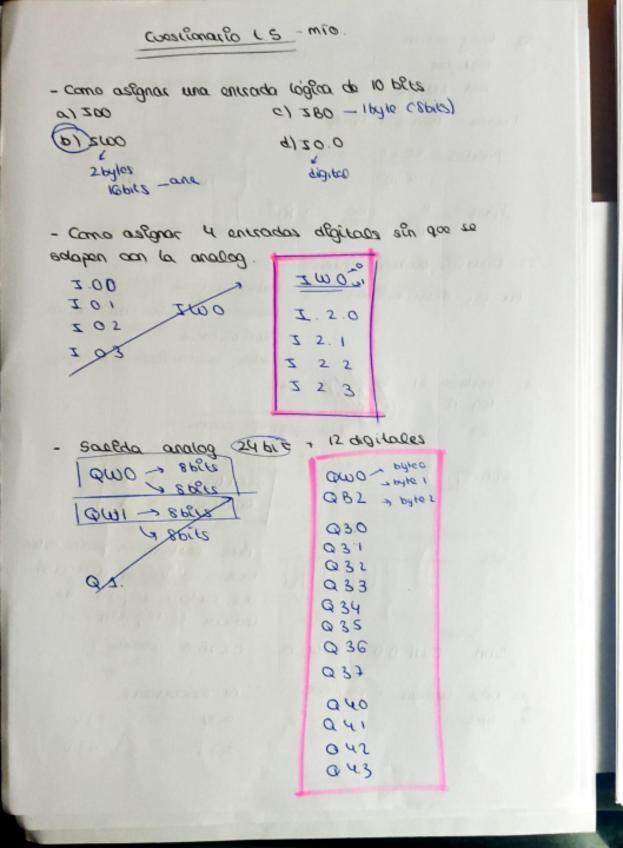 Cuestionario LS - mio.
- Como asignar una entrada lógica de 10 bits
a) I00
c) IB0 - 1byte (8bits)
b) IW0
d) I0.0
2bytes
16bits - ana
digital
- Como asignar 4 entradas digitals sin que se
solapen con la analog.
I.00
I 01
I 02
I 03
IW0
IW0
I.2.0
I 2.1
I 2 2
I 2 3
- Salida analog 24bit, 12 digitales
QW0 → 8bits
↳ 8bits
QW1 → 8bits
↳ 8bits
Q 1.
QW0 → byte0
→ byte 1
QB2 → byte 2
Q30
Q31
Q32
Q33
Q34
Q35
Q36
Q37
Q40
Q41
Q42
Q43